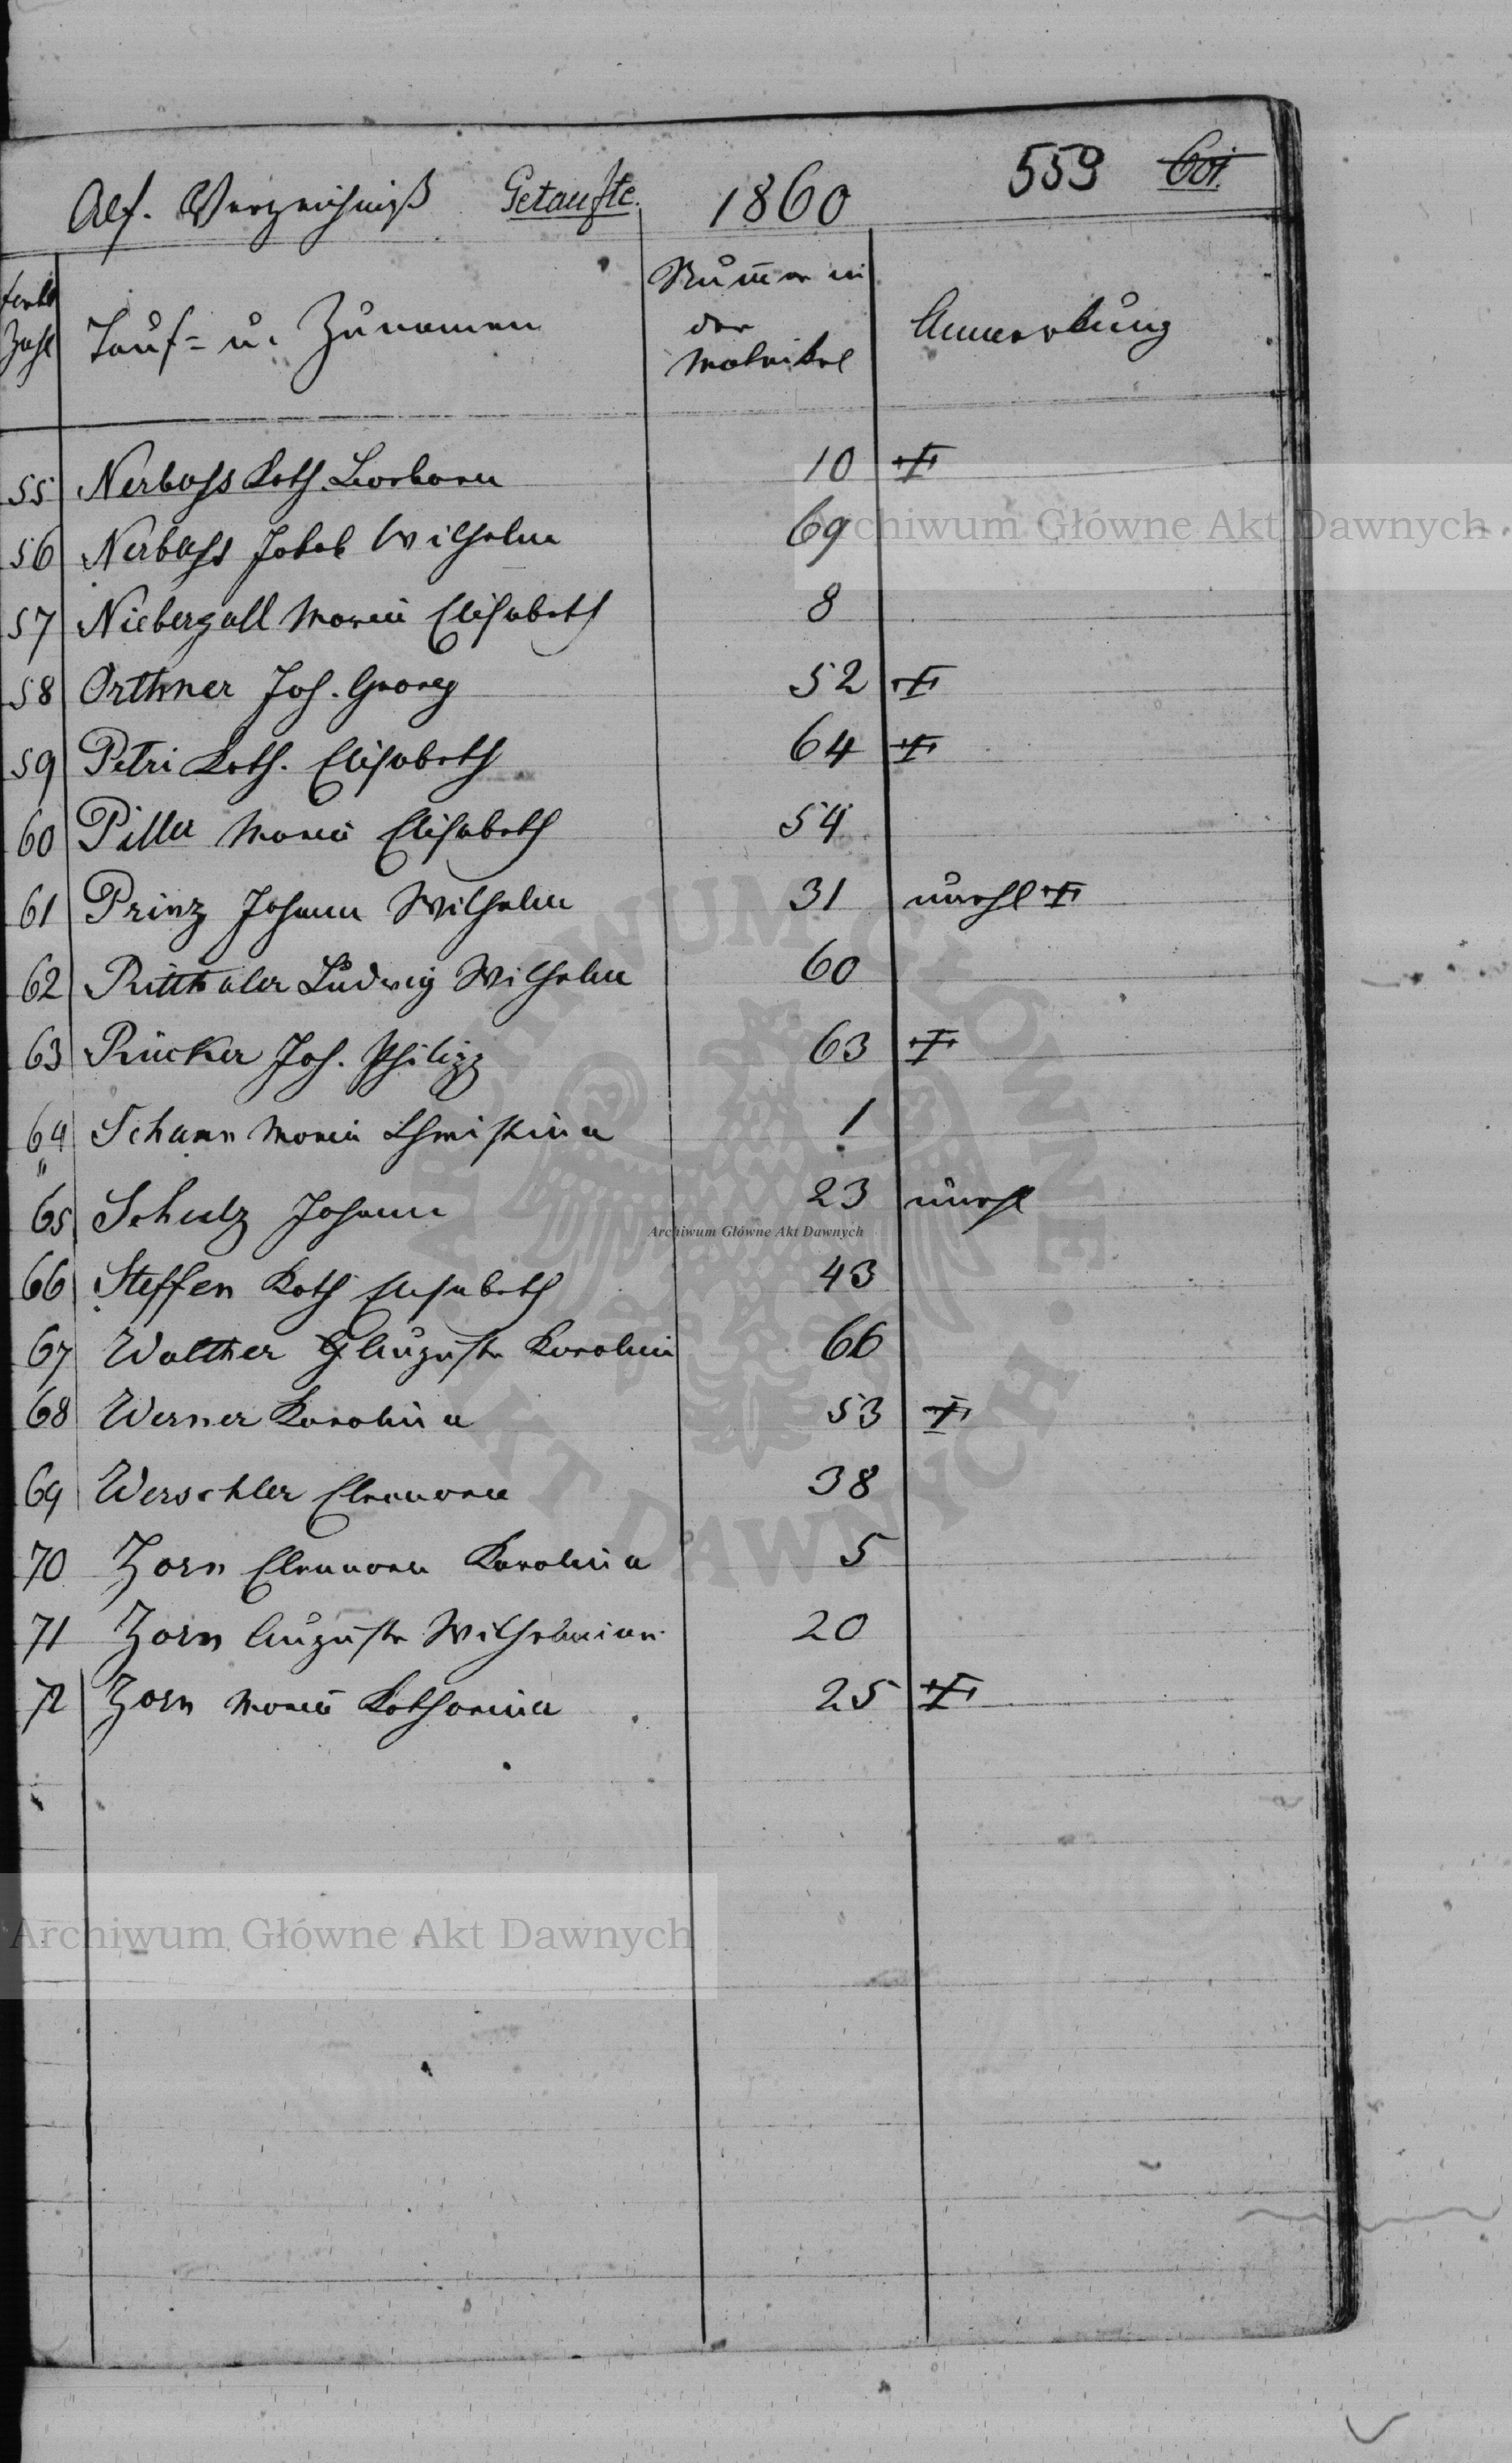 Alf. Verzeichniß Getaufte. 1860 559 601.
Zahl
Tauf- u. Zunamen
Num̅er in
der
Matrikel
Anmerkung
55 Nerbass Kath. Barbara 10 ♰
56 Nerbass Jakob Wilhelm 69
57 Niebergall Maria Elisabeth 8
58 Orthner Joh. Georg 52 ♰
59 Petri Kath. Elisabeth 64 ♰
60 Piller Maria Elisabeth 54
61 Prinz Johann Wilhelm 31 unehl ♰
62 Ritthaler Ludwig Wilhelm 60
63 Rücker Joh. Philipp 63 ♰
64 Schann Maria Christina 1
65 Schulz Johann 23 unehl
66 Steffen Kath Elisabeth 43
67 Walther Auguste Karolina 66
68 Werner Karolina 53 ♰
69 Werschler Eleanora 38
70 Zorn Eleanora Karolina 5
71 Zorn Auguste Wilhelmine 20
72 Zorn Maria Katharina 25 ♰
Archiwum Główne Akt Dawnych
ARCHIWUM GŁÓWNE AKT DAWNYCH
Archiwum Główne Akt Dawnych
Archiwum Główne Akt Dawnych